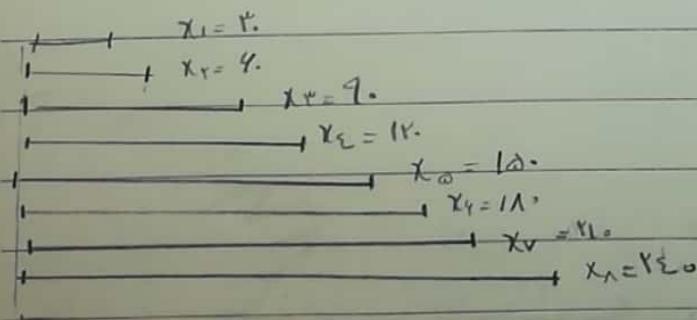 x۱ = ۳۰
x۲ = ۶۰
x۳ = ۹۰
x٤ = ۱۲۰
x۵ = ۱۵۰
x۶ = ۱۸۰
x۷ = ۲۱۰
x۸ = ۲٤۰